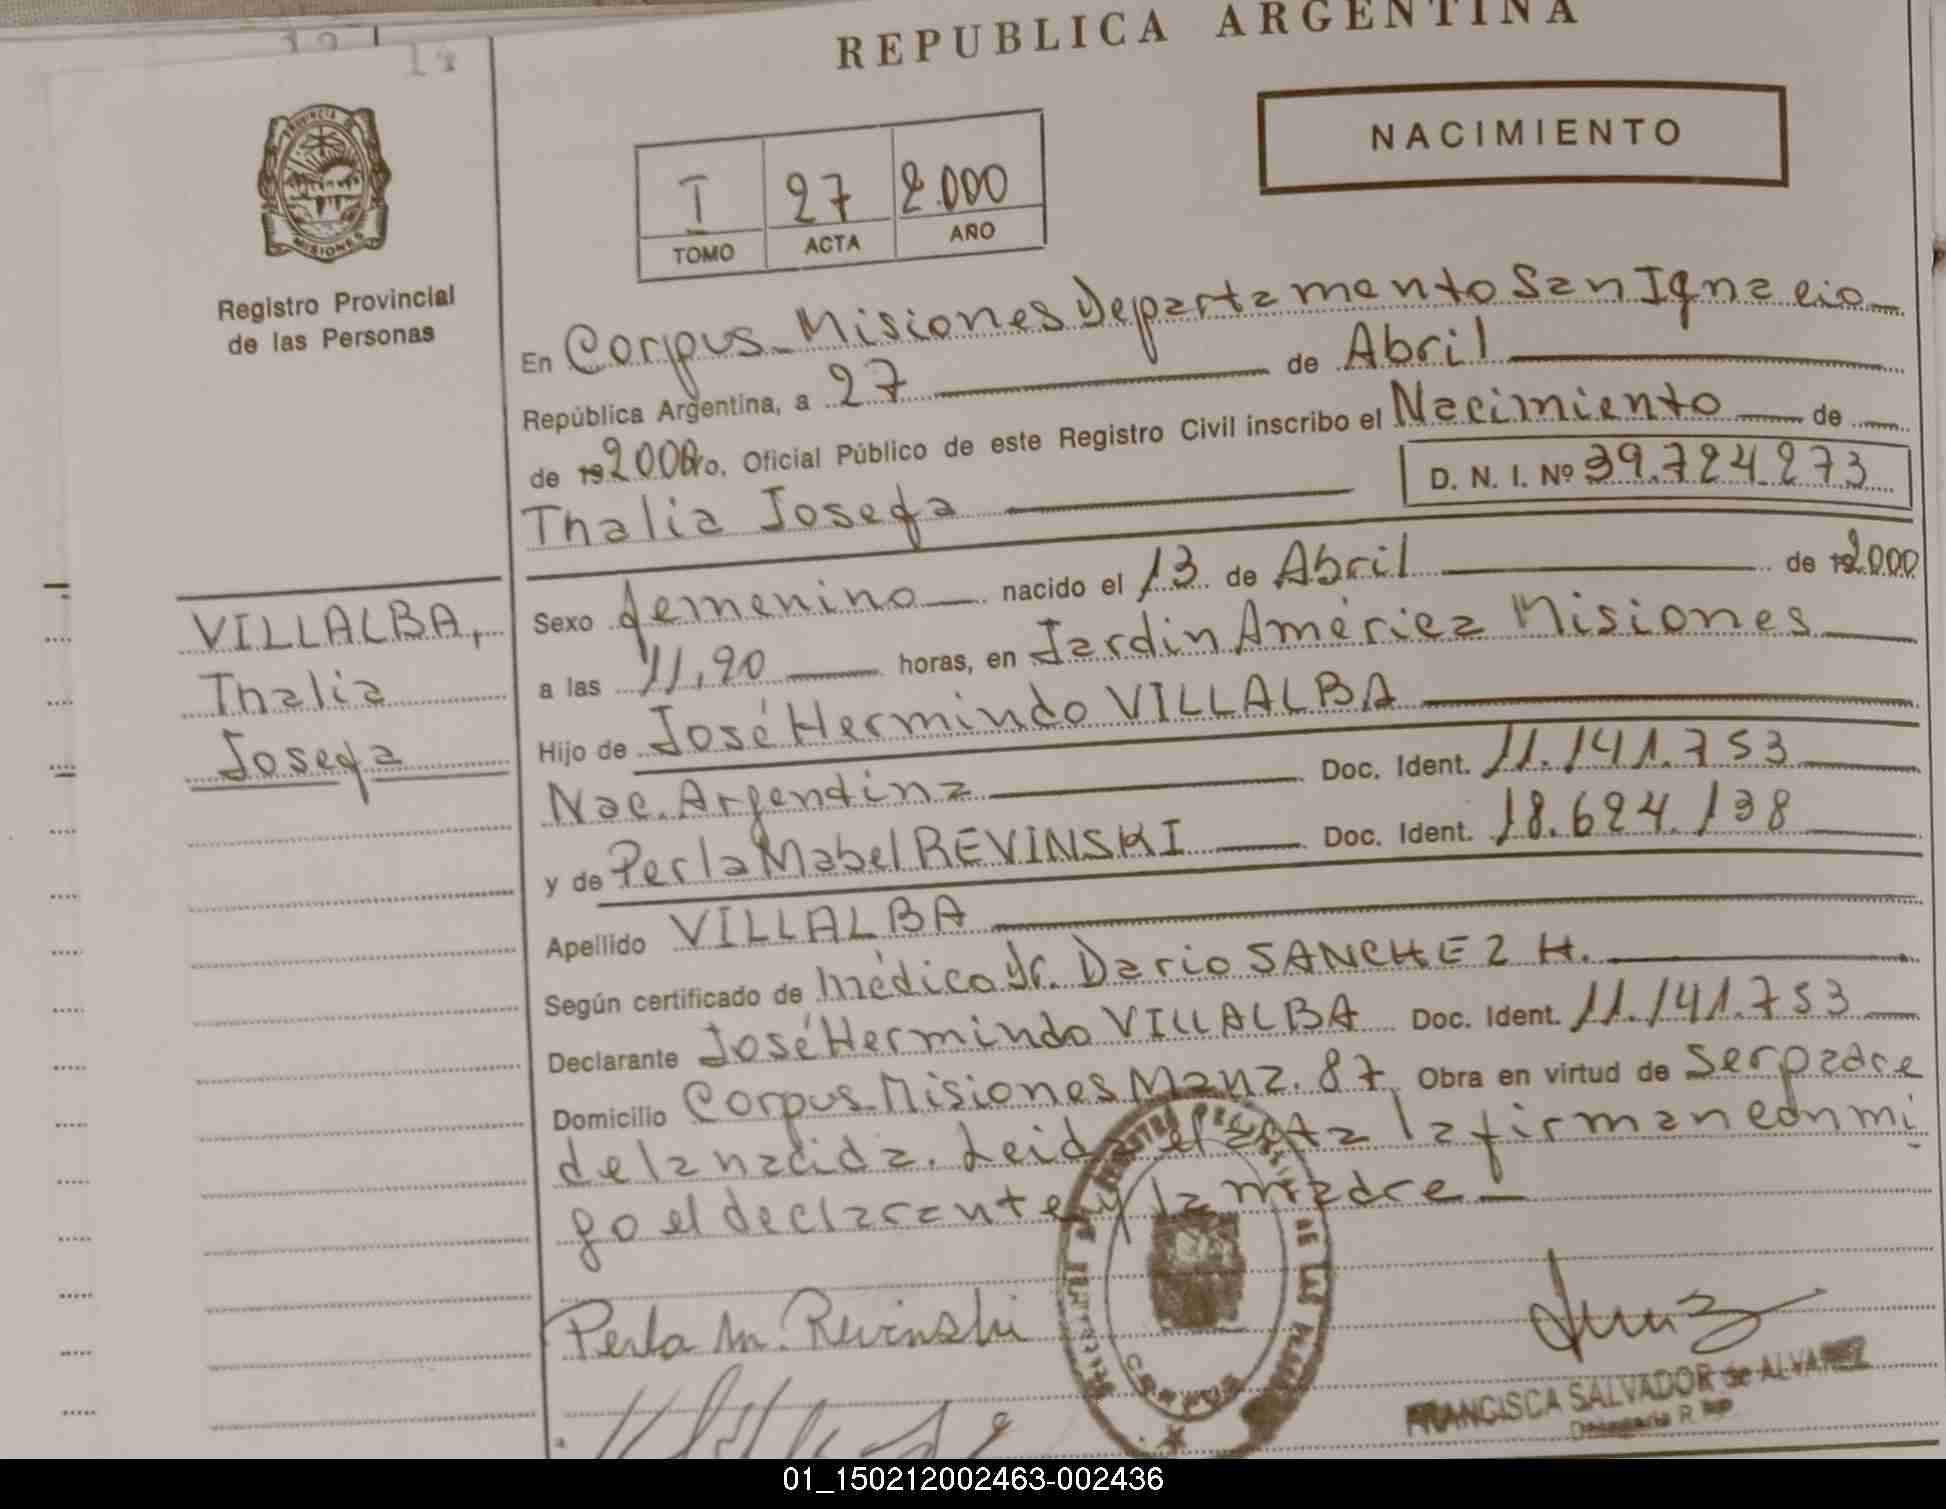 REPUBLICA ARGENTINA
14
PROVINCIA DE
MISIONES
Registro Provincial
de las Personas
NACIMIENTO
I 27 2.000
TOMO ACTA AÑO
En Corpus - Misiones Departamento San Ignacio
República Argentina, a 27 de Abril
de 19 2000 Yo, Oficial Público de este Registro Civil inscribo el Nacimiento de
Thalia Josefa D. N. I. Nº 39.724.273
VILLALBA,
Thalia
Josefa
Sexo femenino nacido el 13 de Abril de 19 2000
a las 11,20 horas, en Jardin América Misiones
Hijo de José Hermindo VILLALBA
Nac. Argentina Doc. Ident. 11.141.753
y de Perla Mabel REVINSKI Doc. Ident. 18.624.138
Apellido VILLALBA
Según certificado de médico Dr. Dario SANCHEZ H.
Declarante José Hermindo VILLALBA Doc. Ident. 11.141.753
Domicilio Corpus - Misiones Manz. 87 Obra en virtud de Ser padre
de la nacida. Leida el acta la firman conmi
go el declarante y la madre
Perla M. Revinski
DE LAS
CORPUS
FRANCISCA SALVADOR de ALVAREZ
01_150212002463-002436